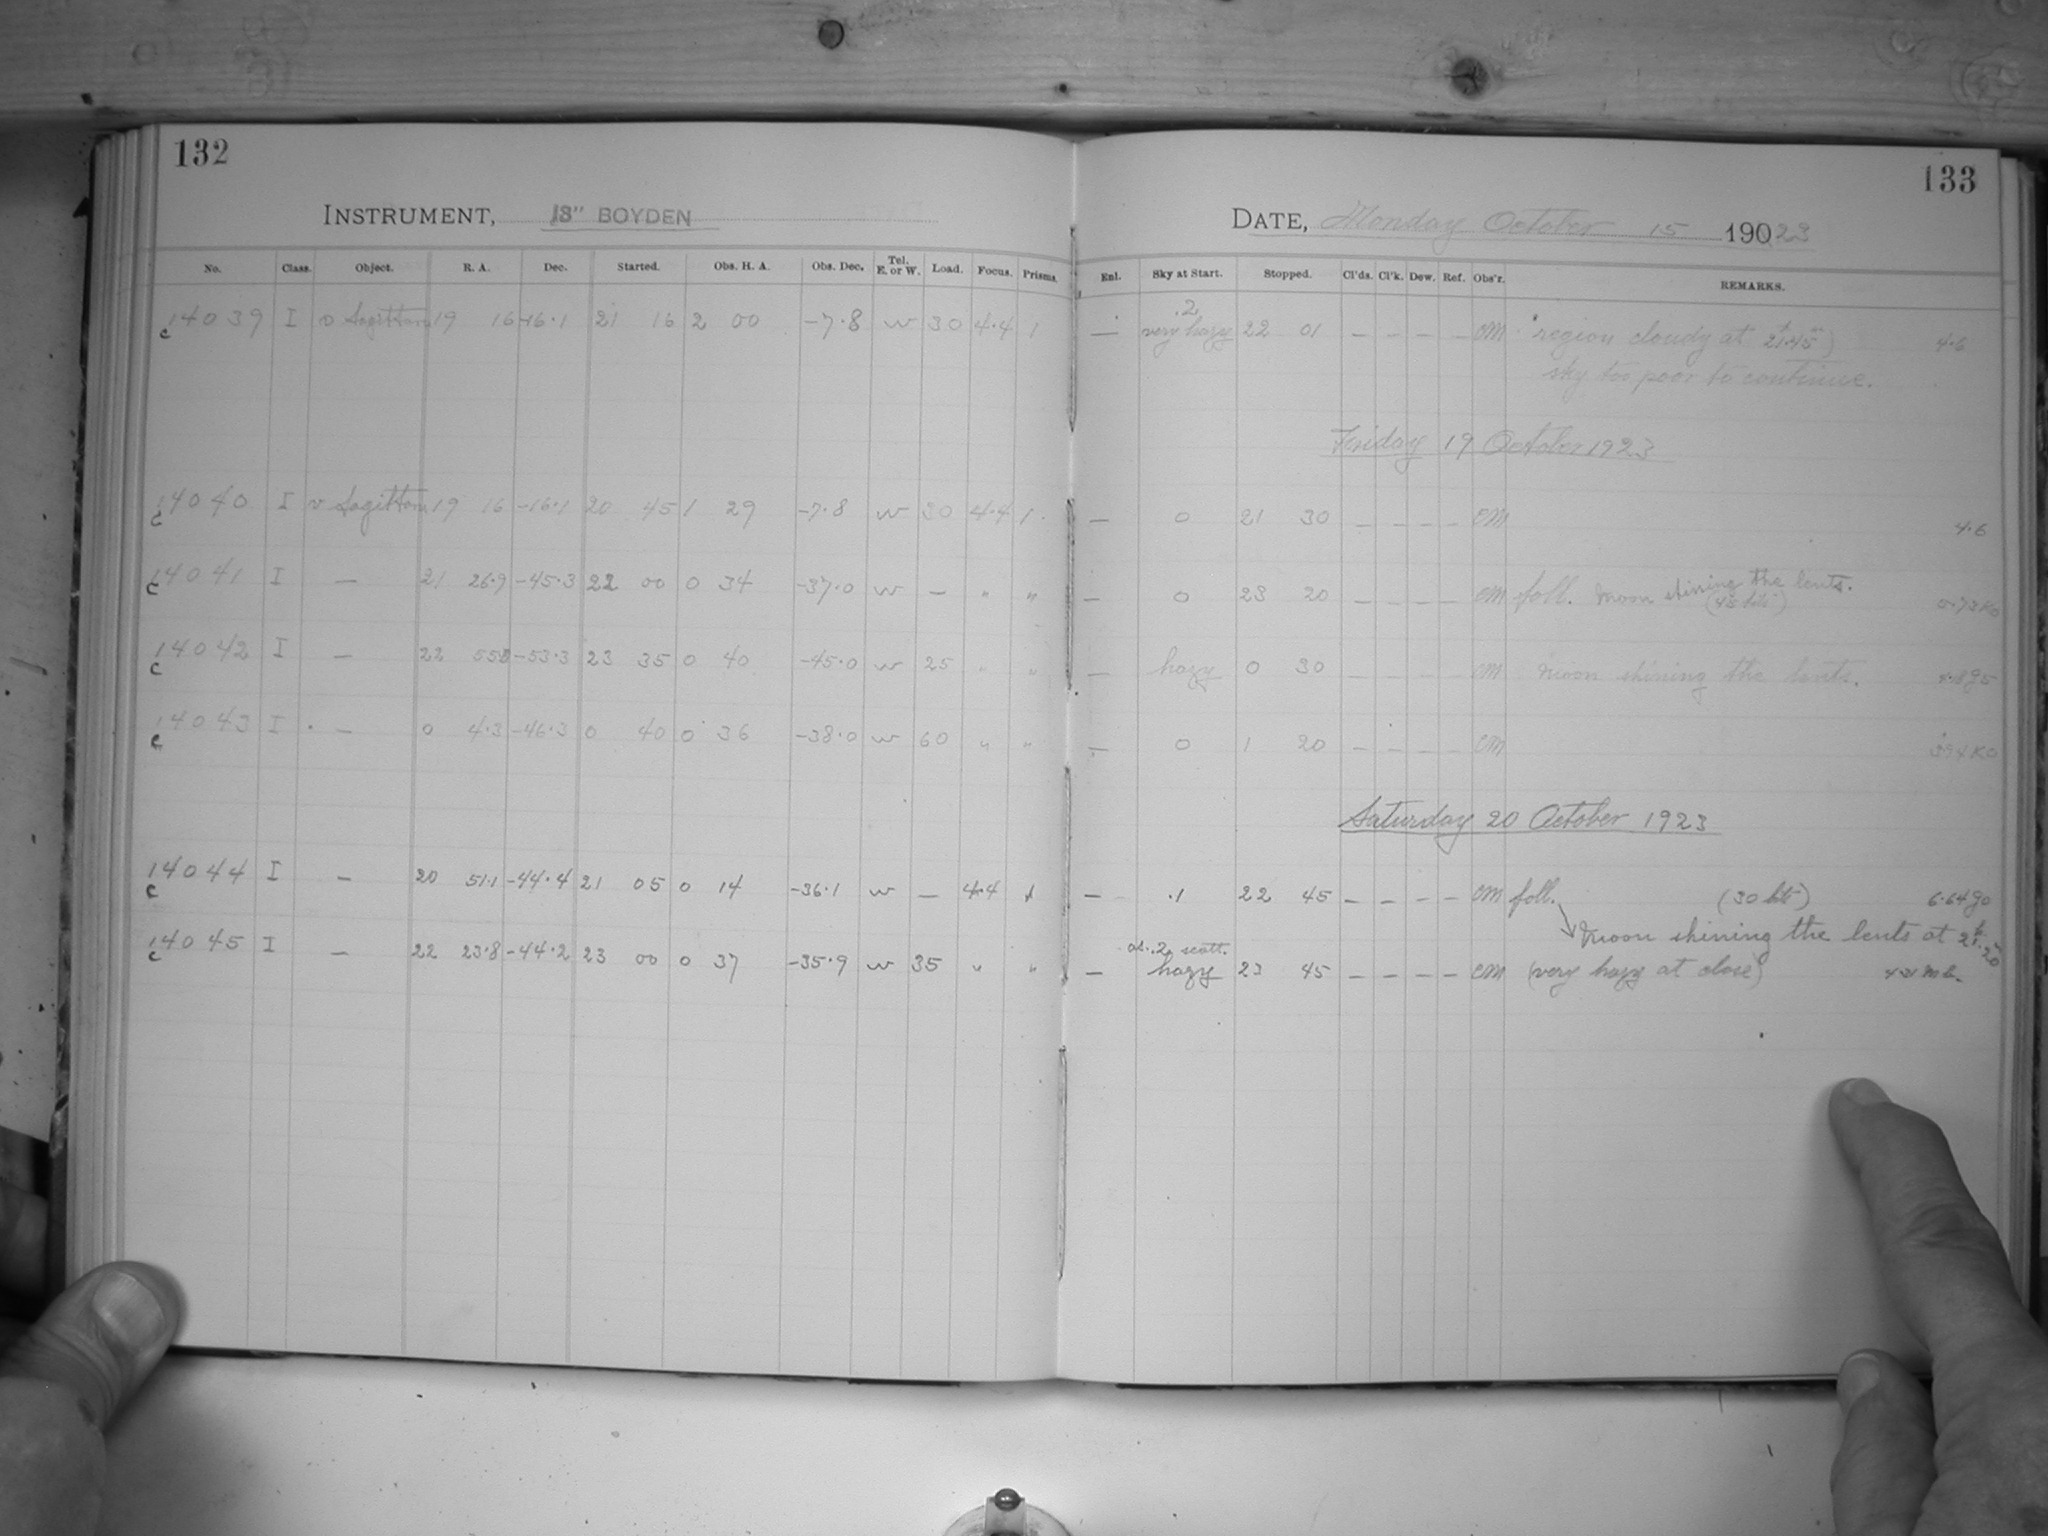 132
INSTRUMENT, 13" BOYDEN
No. Class. Object. R. A. Dec. Started. Obs. H. A. Obs. Dec. Tel. E. or W. Load. Focus. Prisms.
c14039 I υ Sagittarii 19 16 -16.1 21 16 2 00 -7.8 w 30 4.4 1
c14040 I υ Sagittarii 19 16 -16.1 20 45 1 29 -7.8 w 30 4.4 1
c14041 I — 21 26.9 -45.3 22 00 0 34 -37.0 w — " "
c14042 I — 22 -53.3 23 35 0 40 -45.0 w 25 " "
c14043 I — 0 4.3 -46.3 0 40 0 36 -38.0 w 60 " "
c14044 I — 20 51.1 -44.4 21 05 0 14 -36.1 w — 4.4 1
c14045 I — 22 23.8 -44.2 23 00 0 37 -35.9 w 35 " "
133
DATE, Monday October 15 190 23
Enl. Sky at Start. Stopped. Cl'ds. Cl'k. Dew. Ref. Obs'r. REMARKS.
— .2 very hazy 22 01 — — — — CM region cloudy at 21h.45m) 4.6
sky too poor to continue.
Friday 19 October 1923
— 0 21 30 — — — — CM 4.6
— 0 23 20 — — — — CM foll. Moon shining the lents.
— hazy 0 30 — — — — CM Moon shining the lents.
— 0 1 20 — — — — CM
Saturday 20 October 1923
— .1 22 45 — — — — CM foll. 6.64 g0
Moon shining the lents at 21h.20m
— .2 scatt. hazy 23 45 — — — — CM (very hazy at close)